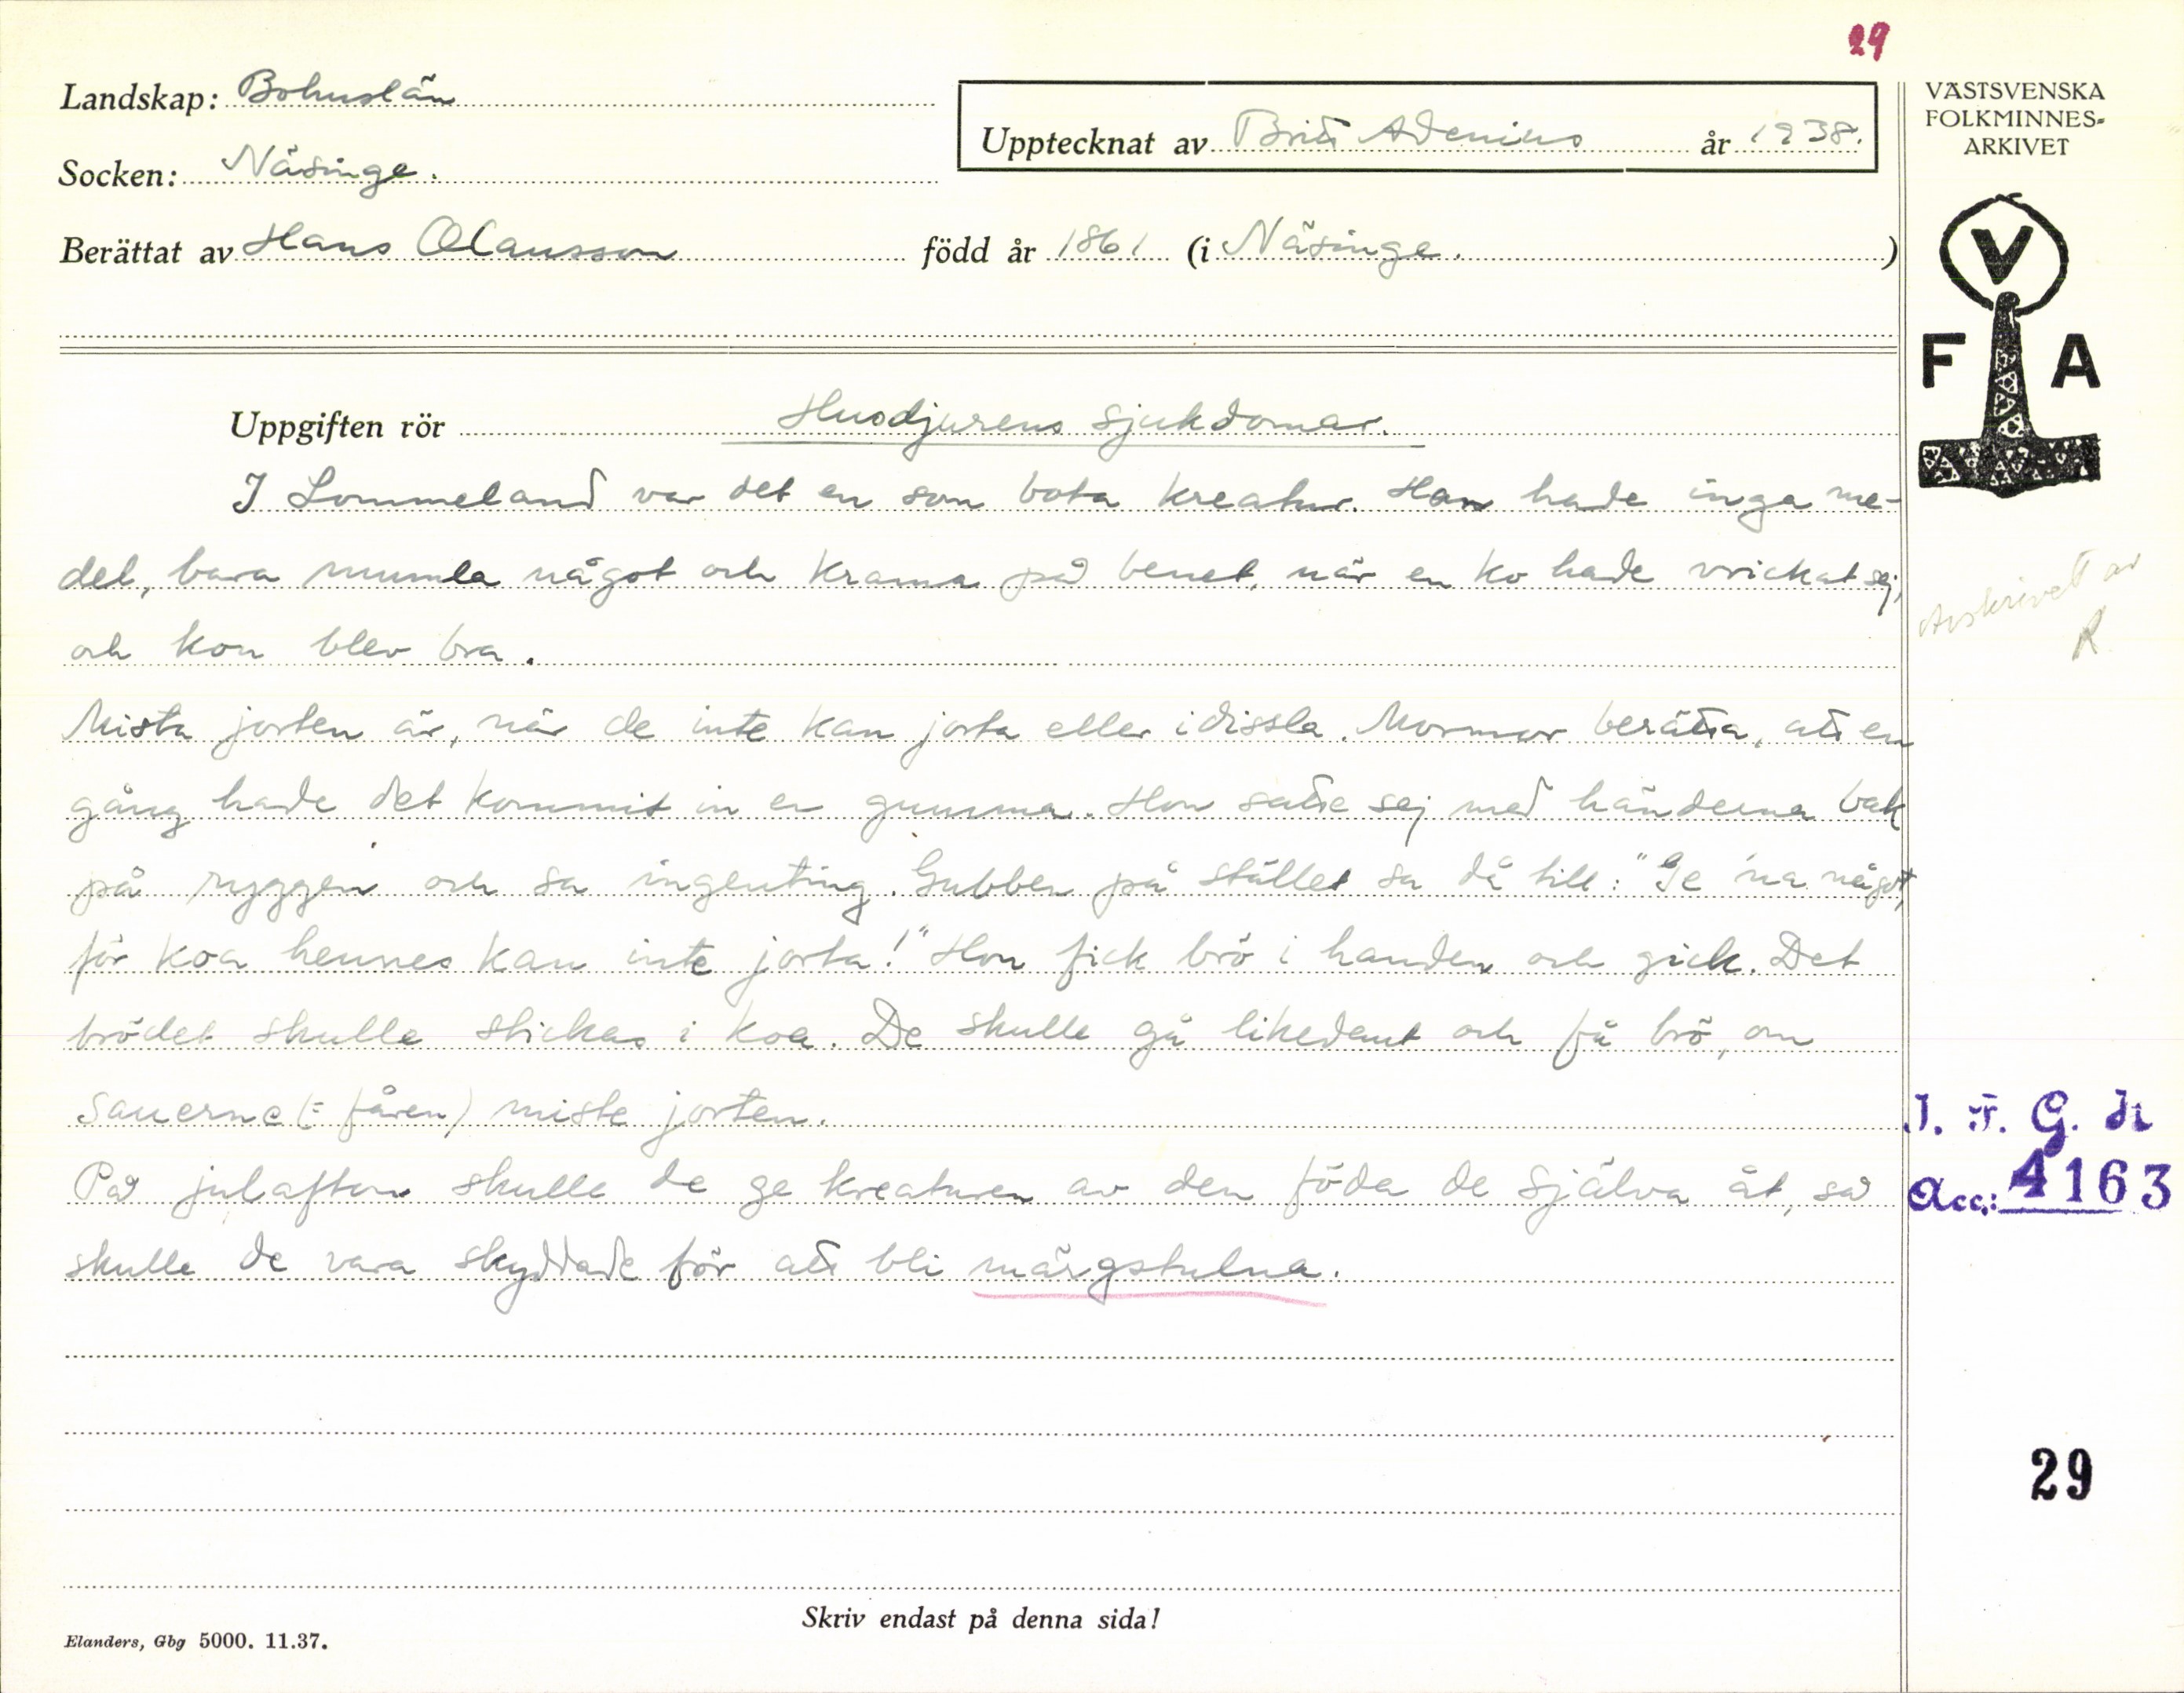 29
Landskap: Bohuslän
Upptecknat av Britt Adenius år 1938.
Socken: Näsinge.
Berättat av Hans Olausson född år 1861 (i Näsinge.)
VÄSTSVENSKA
FOLKMINNES-
ARKIVET
V
F A
Uppgiften rör Husdjurens sjukdomar.
I Lommeland var det en som bota kreatur. Han hade inga me-
del, bara mumla något och krama på benet, när en ko hade vrickat sej,
och kon blev bra.
Mista jorten är, när de inte kan jorta eller idissla. Mormor berätta, att en
gång hade det kommit in en gumma. Hon satte sej med händerna bak
på ryggen och sa ingenting. Gubben på stället sa då till: "Ge 'na något,
för koa hennes kan inte jorta!" Hon fick brö i handen och gick. Det
brödet skulle stickas i koa. De skulle gå likedant och få brö, om
sauerne (= fåren) miste jorten.
På julafton skulle de ge kreaturen av den föda de själva åt, så
skulle de vara skyddade för att bli märgstulna.
Avskrivet av
R
I. F. G. H
Acc: 4163
29
Skriv endast på denna sida!
Elanders, Gbg 5000. 11.37.